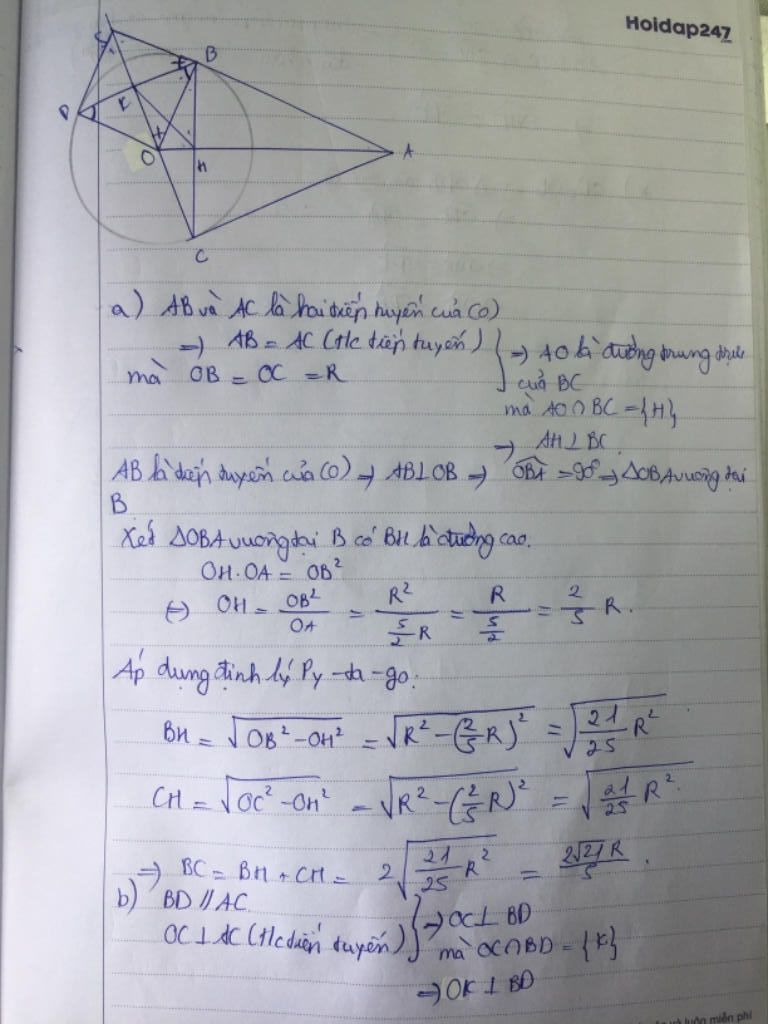 Hoidap247
B
K
D
O
H
A
C
a) AB và AC là hai tiếp tuyến của (O)
=> AB = AC (t/c tiếp tuyến)
mà OB = OC = R
=> AO là đường trung trực
của BC
mà AO ∩ BC = {H}
=> AH ⊥ BC.
AB là tiếp tuyến của (O) => AB ⊥ OB => \widehat{OBA} = 90° => ΔOBA vuông tại
B
Xét ΔOBA vuông tại B có BH là đường cao.
OH.OA = OB²
(=) OH = OB²/OA = R²/(5/2 R) = R/(5/2) = 2/5 R.
Áp dụng định lý Py-ta-go:
BH = √(OB² - OH²) = √(R² - (2/5 R)²) = √(21/25 R²)
CH = √(OC² - OH²) = √(R² - (2/5 R)²) = √(21/25 R²)
=> BC = BH + CH = 2√(21/25 R²) = 2√21 R/5.
b) BD // AC
OC ⊥ AC (t/c tiếp tuyến)
=> OC ⊥ BD
mà OC ∩ BD = {K}
=> OK ⊥ BD
và luôn miễn phí